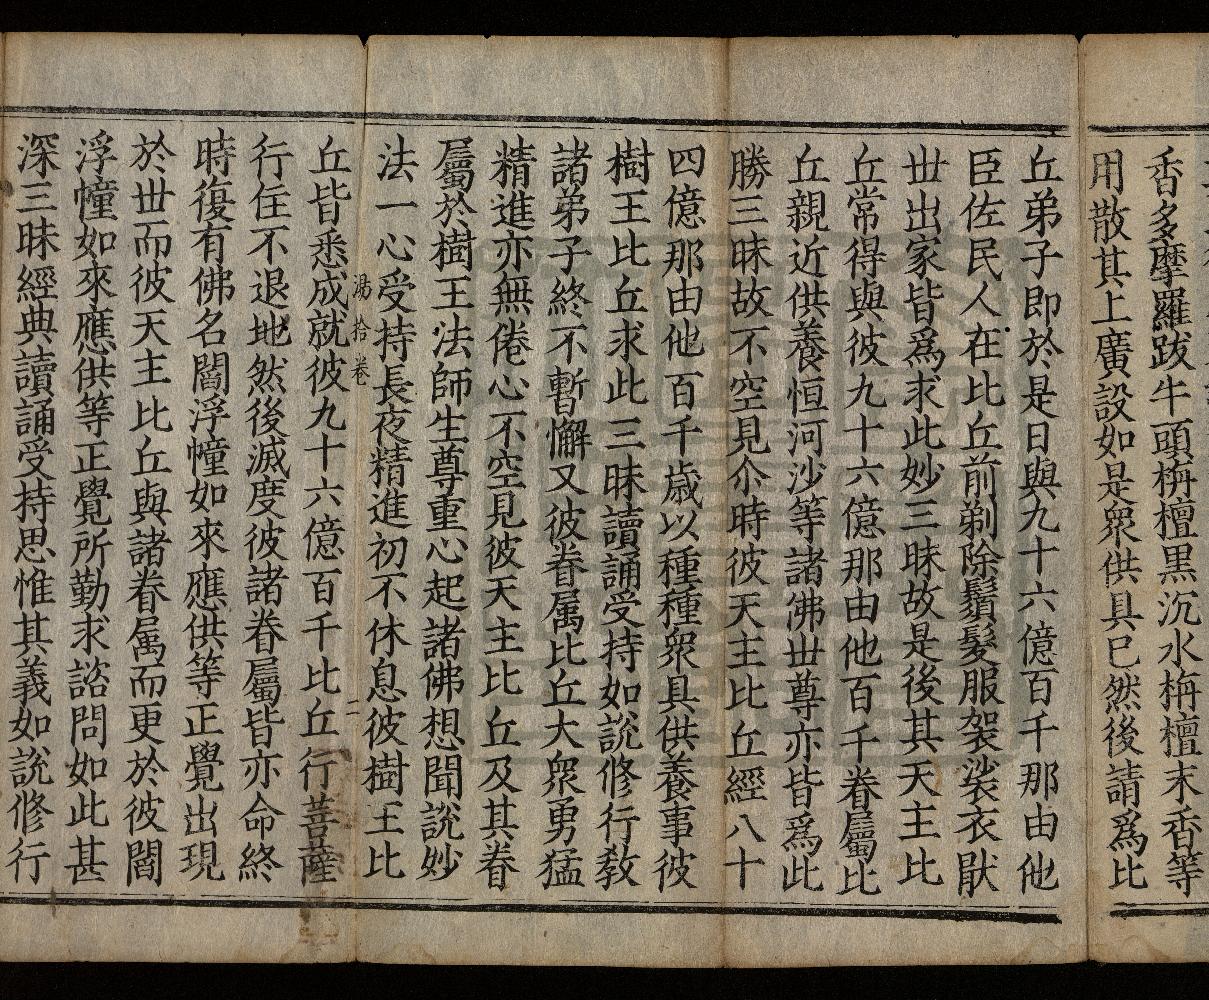 香多摩羅跋牛頭栴檀黑沉水栴檀末香等
用散其上廣設如是衆供具巳然後請爲比
丘弟子即於是日與九十六億百千那由他
臣佐民人在比丘前剃除鬚髮服袈裟衣厭
丗出家皆爲求此妙三昧故是後其天主比
丘常得與彼九十六億那由他百千眷屬比
丘親近供養恒河沙等諸佛丗尊亦皆爲此
勝三昧故不空見尒時彼天主比丘經八十
四億那由他百千歳以種種衆具供養事彼
樹王比丘求此三昧讀誦受持如說修行教
諸弟子終不暫懈又彼眷属比丘大衆勇猛
精進亦無倦心不空見彼天主比丘及其眷
屬於樹王法師生尊重心起諸佛想聞說妙
法一心受持長夜精進初不休息彼樹王比
湯 拾卷 二
丘皆悉成就彼九十六億百千比丘行菩薩
行住不退地然後滅度彼諸眷屬皆亦命終
時復有佛名閻浮幢如來應供等正覺出現
於丗而彼天主比丘與諸眷属而更於彼閻
浮幢如來應供等正覺所勤求諮問如此甚
深三昧經典讀誦受持思惟其義如說修行